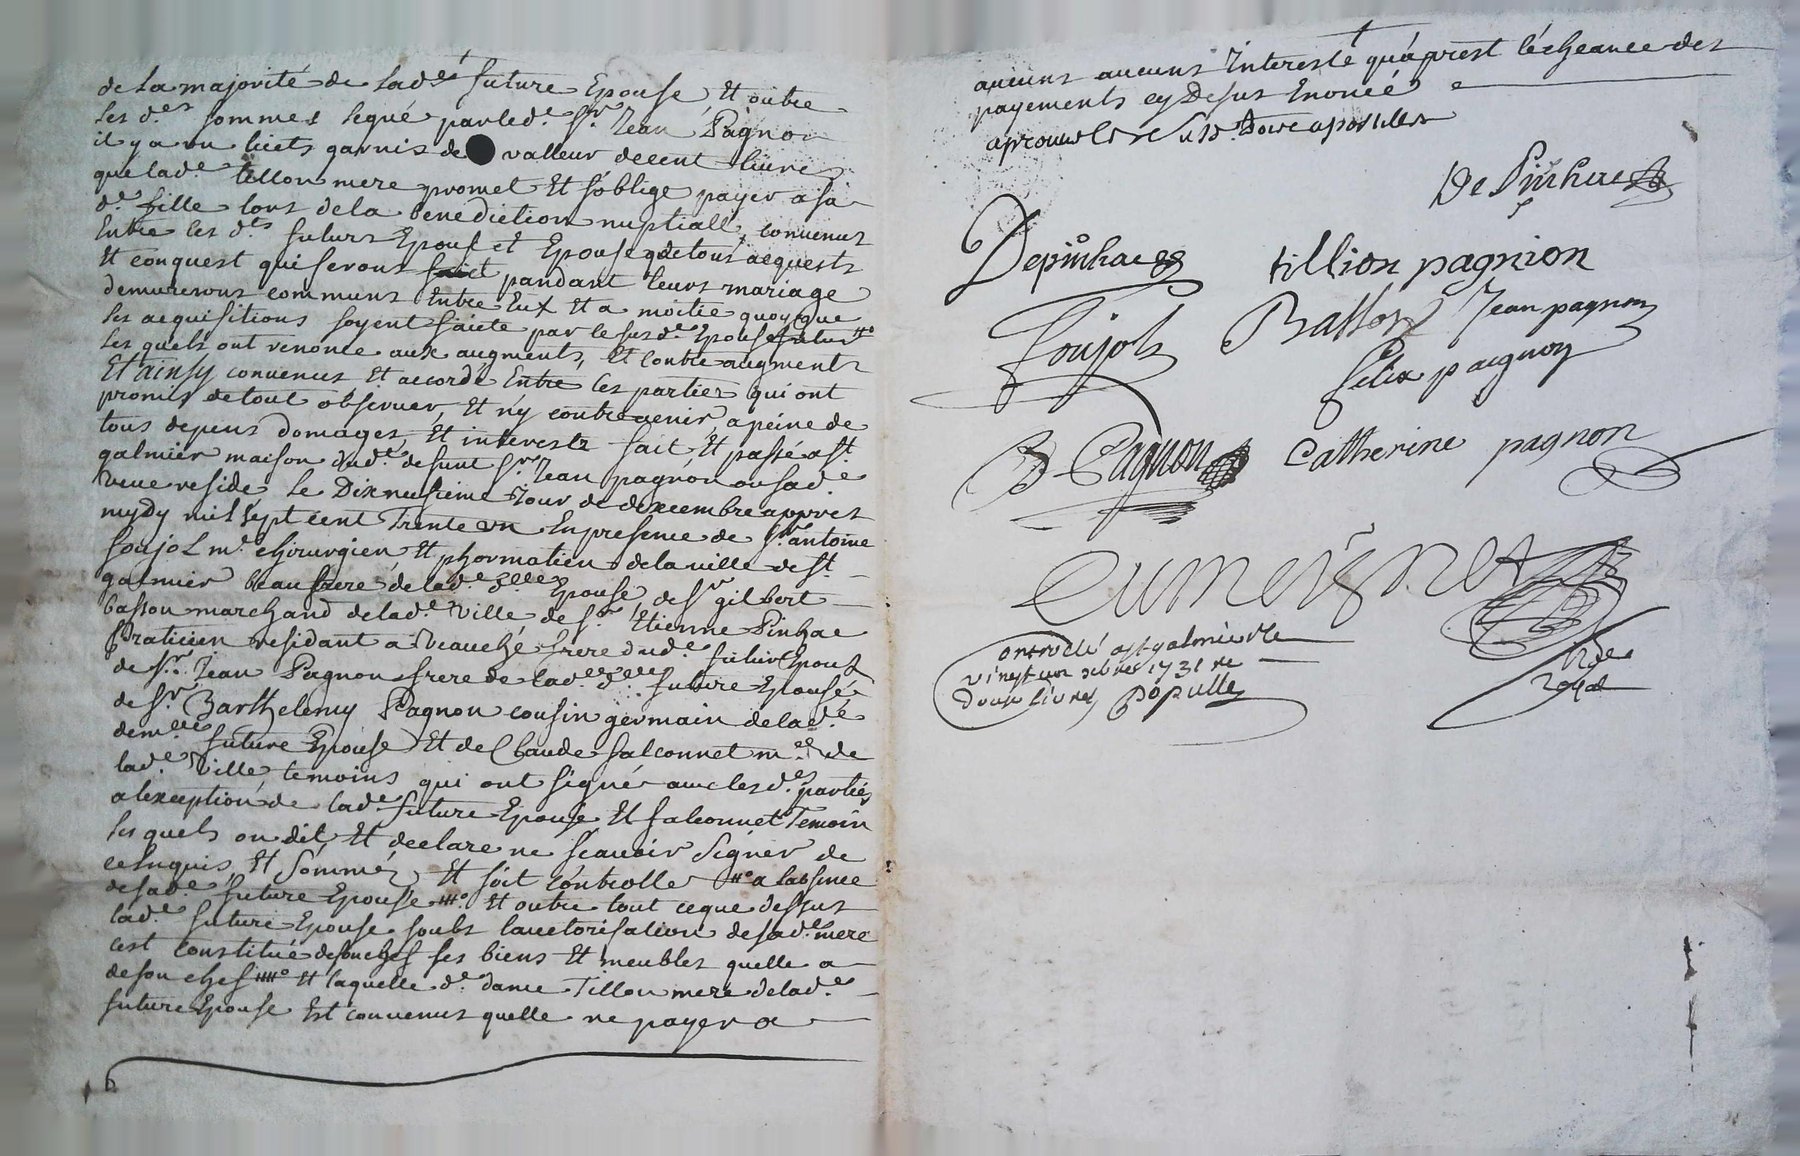 de la majorité de lad.e future Epouse, Et outre
les d.es sommes legué parled.e Sr Jean Pagnon
il y a un licts garnis de valleur de cent livres
que lad.e tillon mere promet Et s'oblige payer a sa
d.e fille lors dela benediction nuptiall, convenus
Entre les d.ts futurs Epoux et Epouse que tous acquests
Et conquest qui serons faict pandant leurs mariage
demureront communs Entre Eux Et a moitié quoy que
les acquisitions soyent faicte par le susd.e Epouse futur #o
les quels ont renoncé aux augments, Et contre augments
Et ainsy convenus Et accordé Entre les parties qui ont
promis de tout observer, Et n'y contrevenir, a peine de
tous depens domages, Et interests fait Et passé a St.
galmier maison dud.e defunt Sr Jean pagnon ou sad.e
veuve reside le Dixneufieme Jour de dexcembre appres
mydy mil sept cent Trente un En presence de Sr antoine
Soujol m.e chirurgien Et pharmatien de la ville de St.
galmier beau frere de lad.e d.lle Epouse, de Sr gilbert
basson marchand de lad.e ville de Sr Etienne Pinhac
Praticien residant a Veauche frere dud.e futur Epoux
de Sr Jean Pagnon frere de lad.e d.lle future Epouse
de Sr Barthelemy Pagnon cousin germain de lad.e
dem.lle future Epouse Et de Claude falconnet m.e de
lad.e ville, temoins qui ont signés avec les d.es parties
a lexception de lad.e future Epouse Et falconnet Temoin
les quels on dit, Et declare ne scavoir signer de
ce Enquis, Et sommés Et soit controlle #o a labsence
de sad.e future Epouse ##o Et outre tout ce que dessus
lad.e future Epouse soubs lauctorisation de sad.e mere
cest constitué de son chef ses biens Et meubles quelle a
de son chef ###o Et laquelle d.e dame Tillon mere de lad.e
future Epouse Est convenus quelle ne payera
aucuns aucuns Interest qu'aprest lécheance des
payements cy Desus Enoncé
De Pinhac
Depinhac tillion pagnion
Soujol Basson Jean pagnon
felix pagnon
B Pagnon Catherine pagnon
ontrollé a St galmier le
vingt un xbre 1731 re
Douse livres Populle
nore
royal